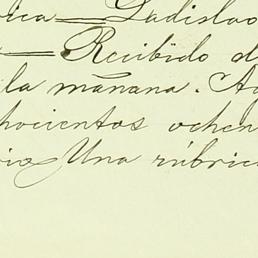 rica — Ladislao
— Recibido d
la mañana. A
hocientos ochen
rio Una rúbric